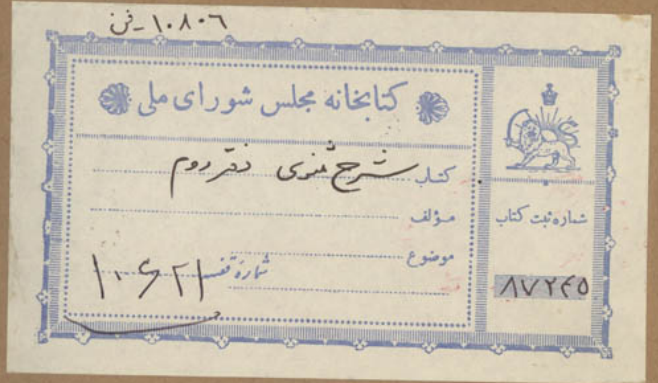 ۱۰۸۰۶ - فن
کتابخانه مجلس شورای ملی
کتاب شرح مثنوی دفتر دوم
مؤلف
موضوع
شماره قفسه ۱۰۶۲۱
شماره ثبت کتاب
۸۷۲۴۵